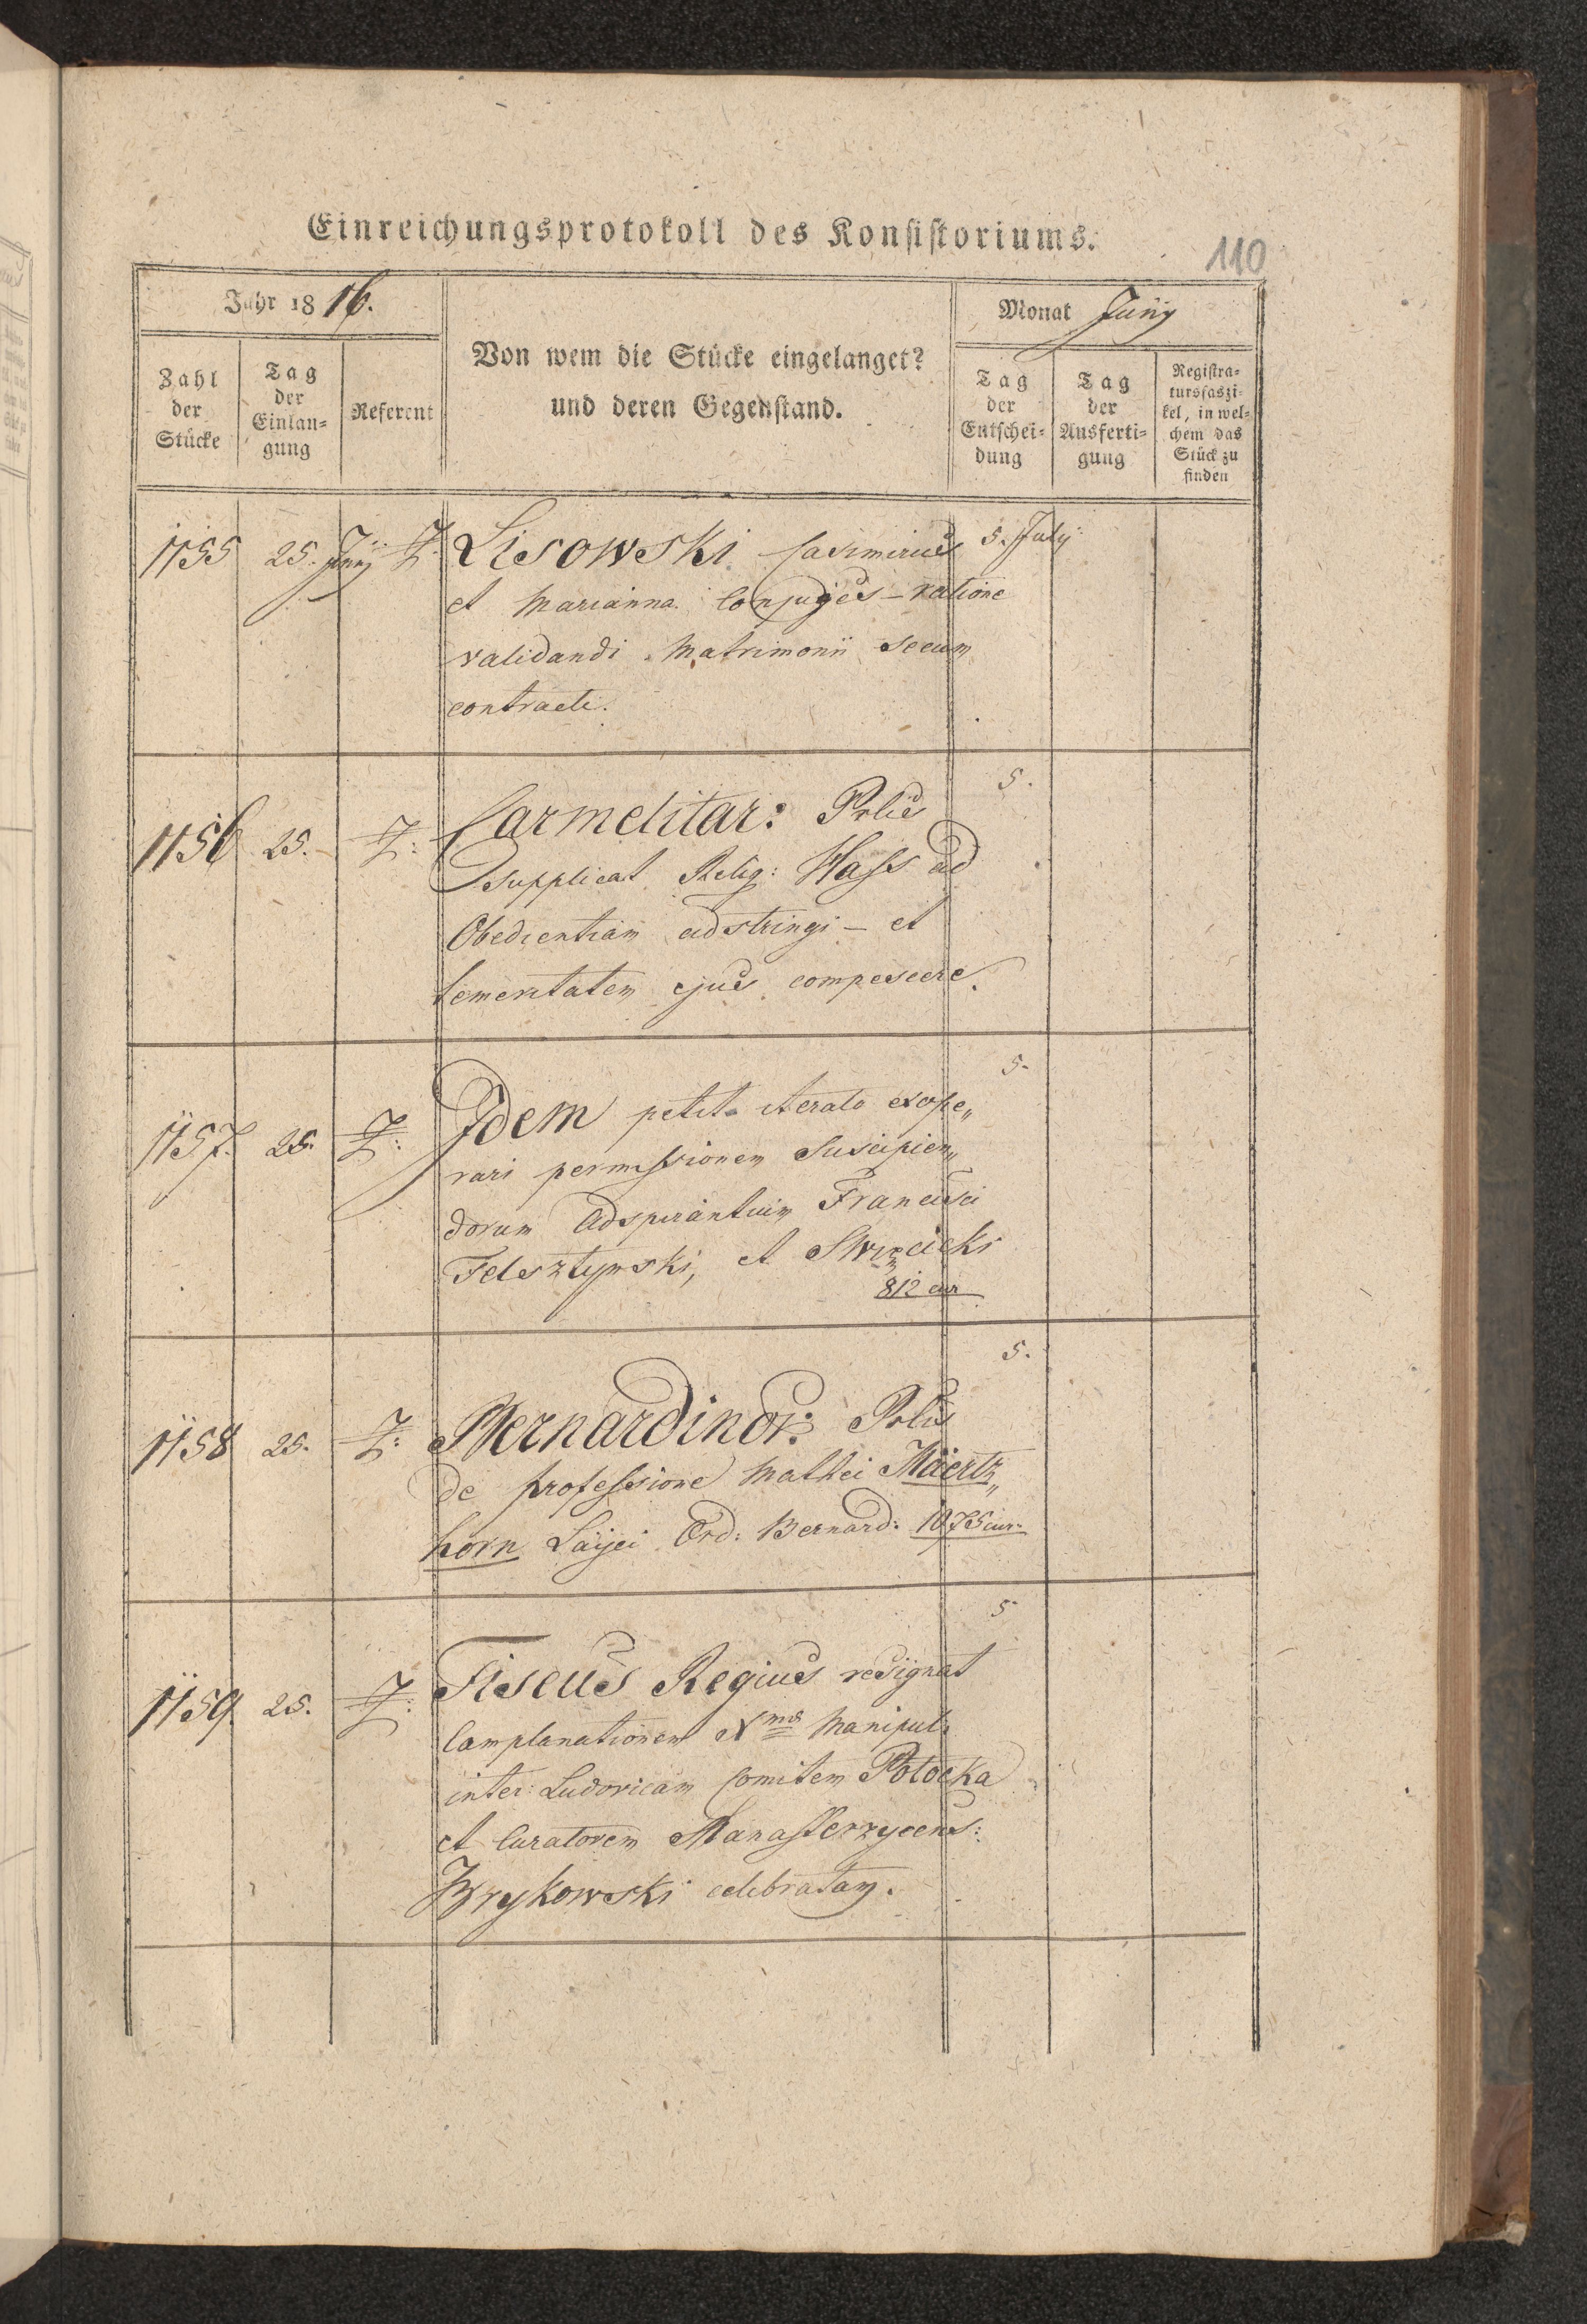 Einreichungsprotokoll des Konsistoriums.
110
Jahr 1816.
Monat Juny
Zahl der Stücke
Tag der Einlan=gung
Referent
Von wem die Stücke eingelanget?
und deren Gegenstand.
Tag der Entschei=dung
Tag der Ausferti=gung
Registra=tursfaszi=kel, in wel=chem das Stück zu finden
1155 25. Juny Z. Lisowski Casimirus 5. July
et Marianna Conjuges – ratione
validandi Matrimonii secum
contracti.
5.
1156 25. Z: Carmelitar: Prlis
supplicat Relig: Hass ad
Obedientiam adstringi – et
temeritatem ejus compescere.
5.
1157. 25. Z: Idem petit iterato exope„
rari permissionem Suscipien„
dorum Adspirantium Francisci
Felsztynski, et Swizcicki
812 cur
5.
1158 25. Z: Bernardinor: Prlis
de professione Mathei Maertz„
horn Layci Ord: Bernard: 1075 cur:
5
1159. 25. Z: Fiscus Regius resignat
Complanationem Nms Manipul.
inter Ludovicam Comitem Potocka
et Curatorem Manasterzycens:
Brykowski celebratam.